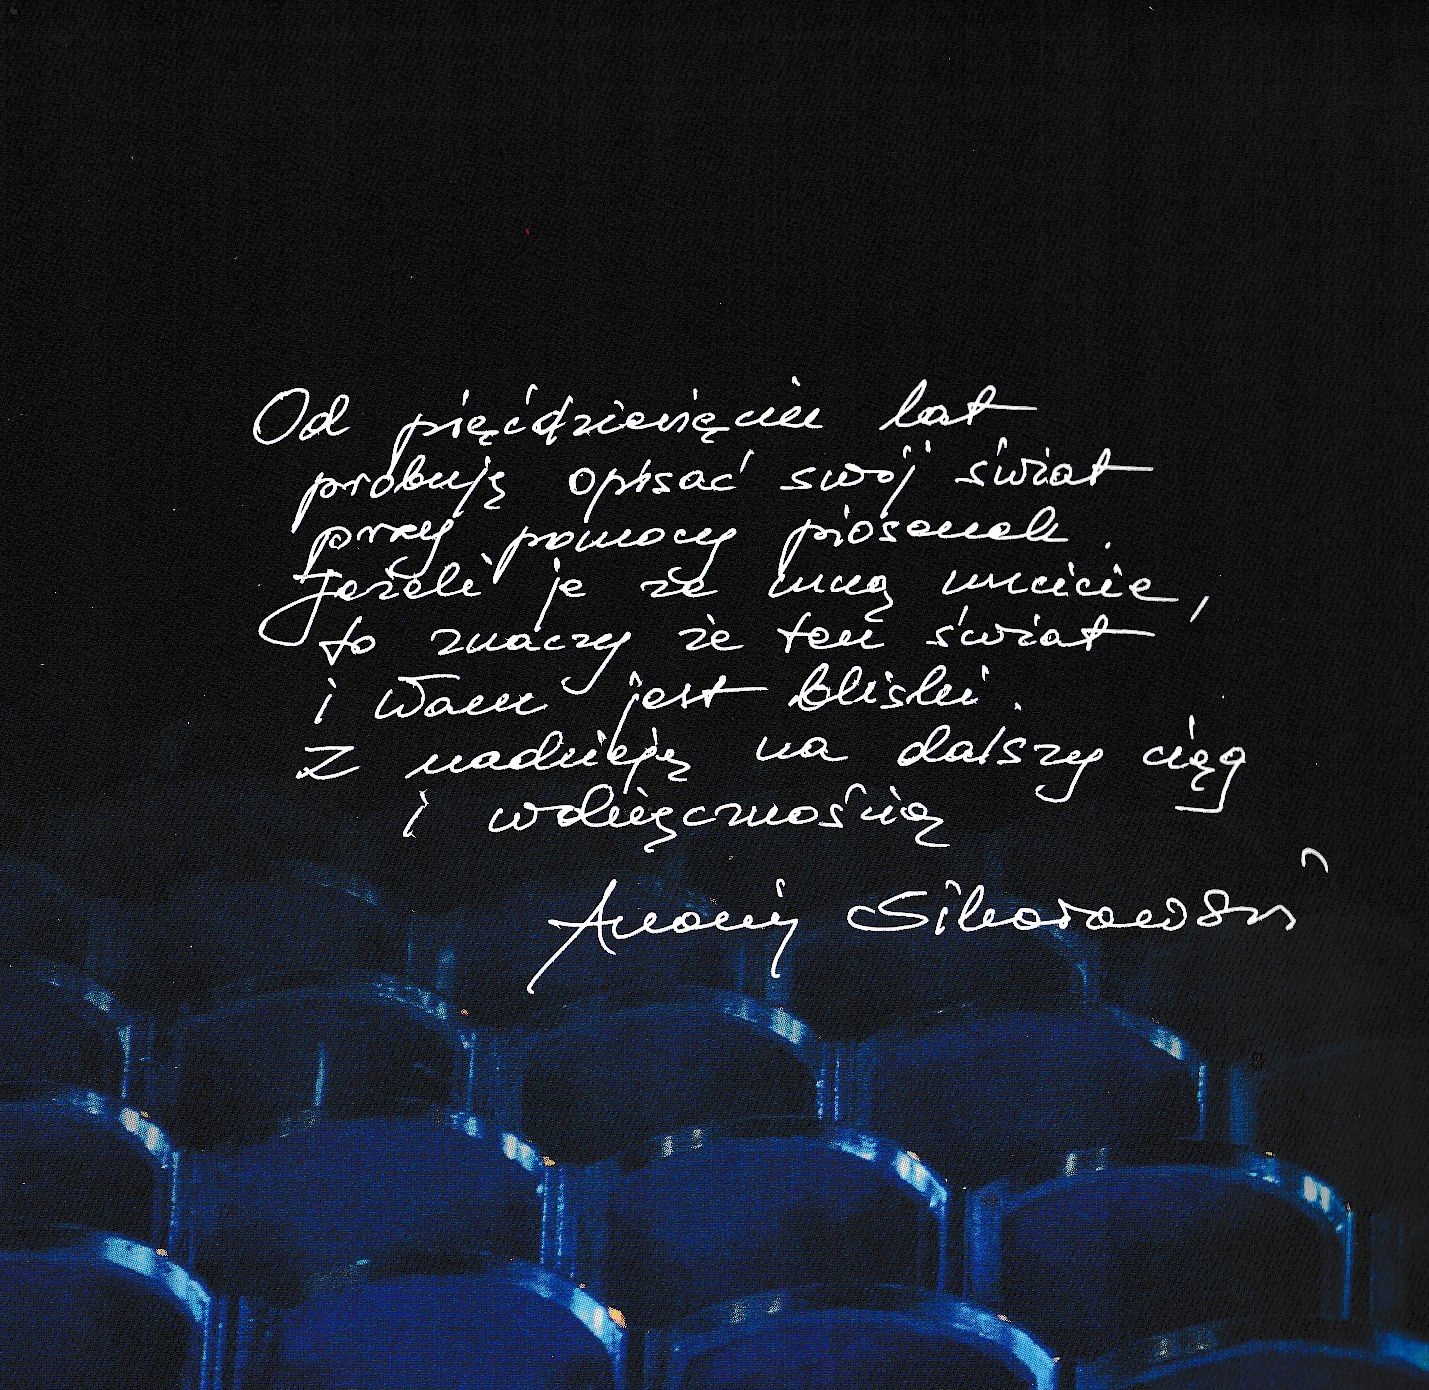 Od pięćdziesięciu lat
próbuję opisać swój świat
przy pomocy piosenek.
Jeżeli je ze mną nucicie,
to znaczy że ten świat
i Wam jest bliski.
Z nadzieją na dalszy ciąg
i wdzięcznością
Andrzej Sikorowski